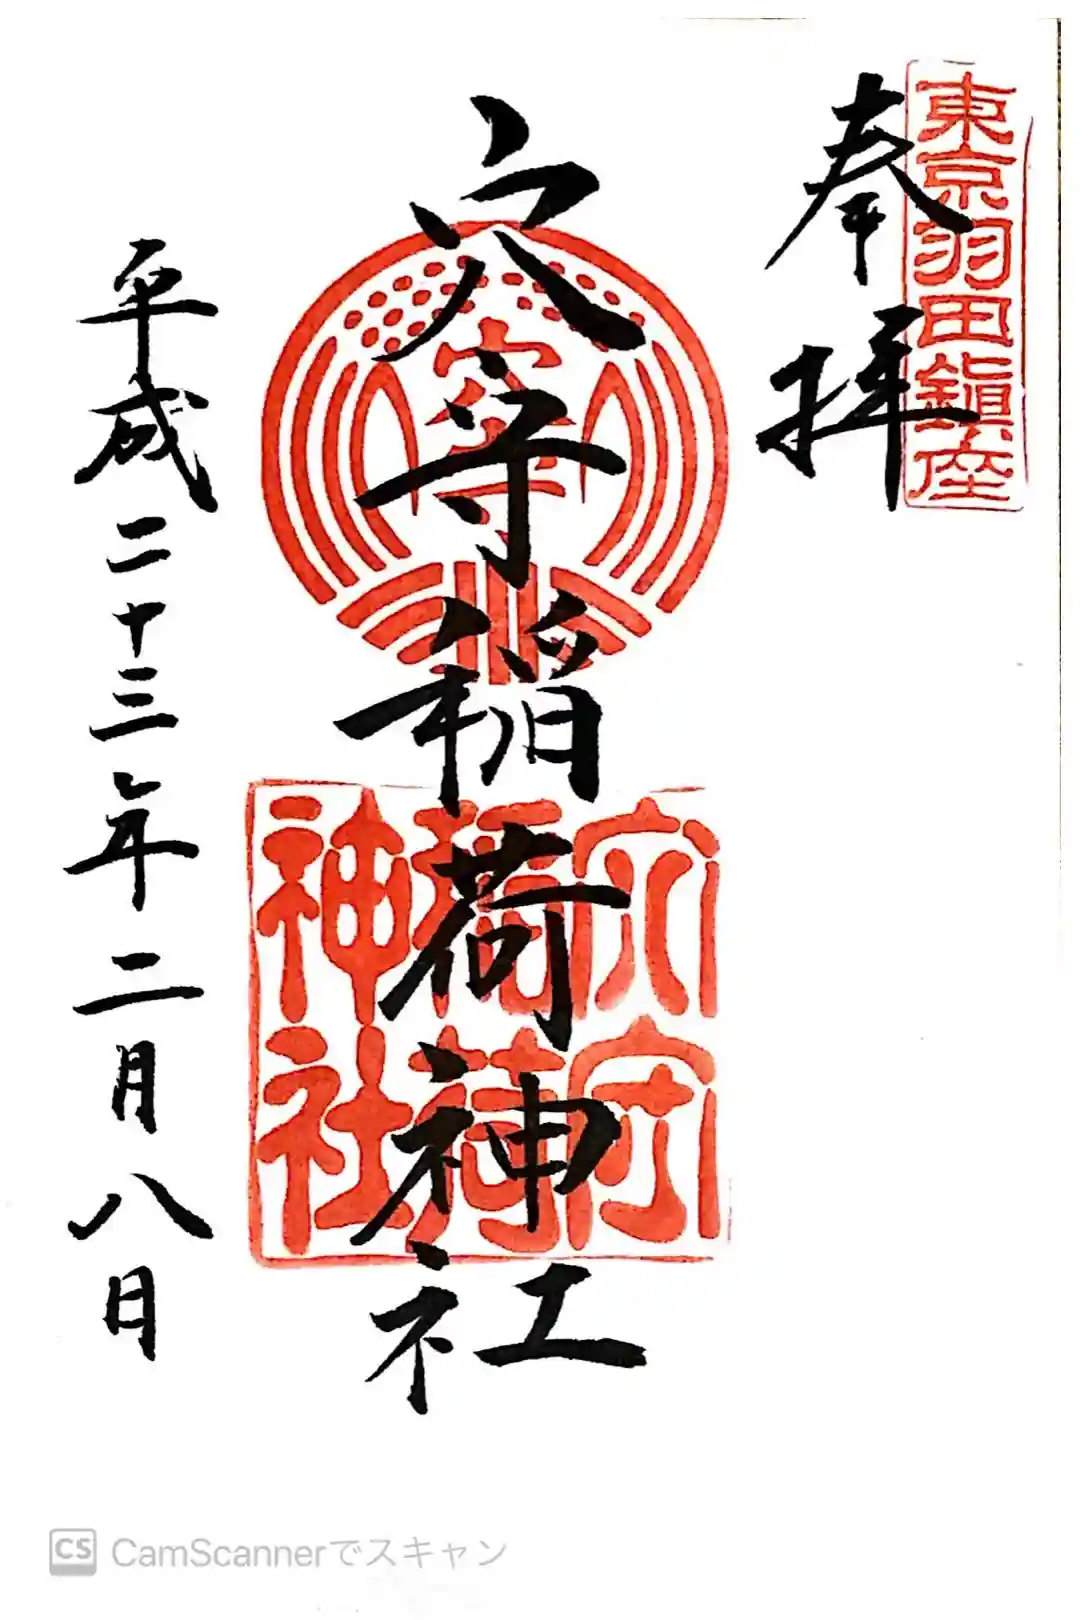 東京羽田鎮座
奉拝
穴守稲荷神社
穴守
穴守
稲荷
神社
平成二十三年二月八日
CS CamScannerでスキャン